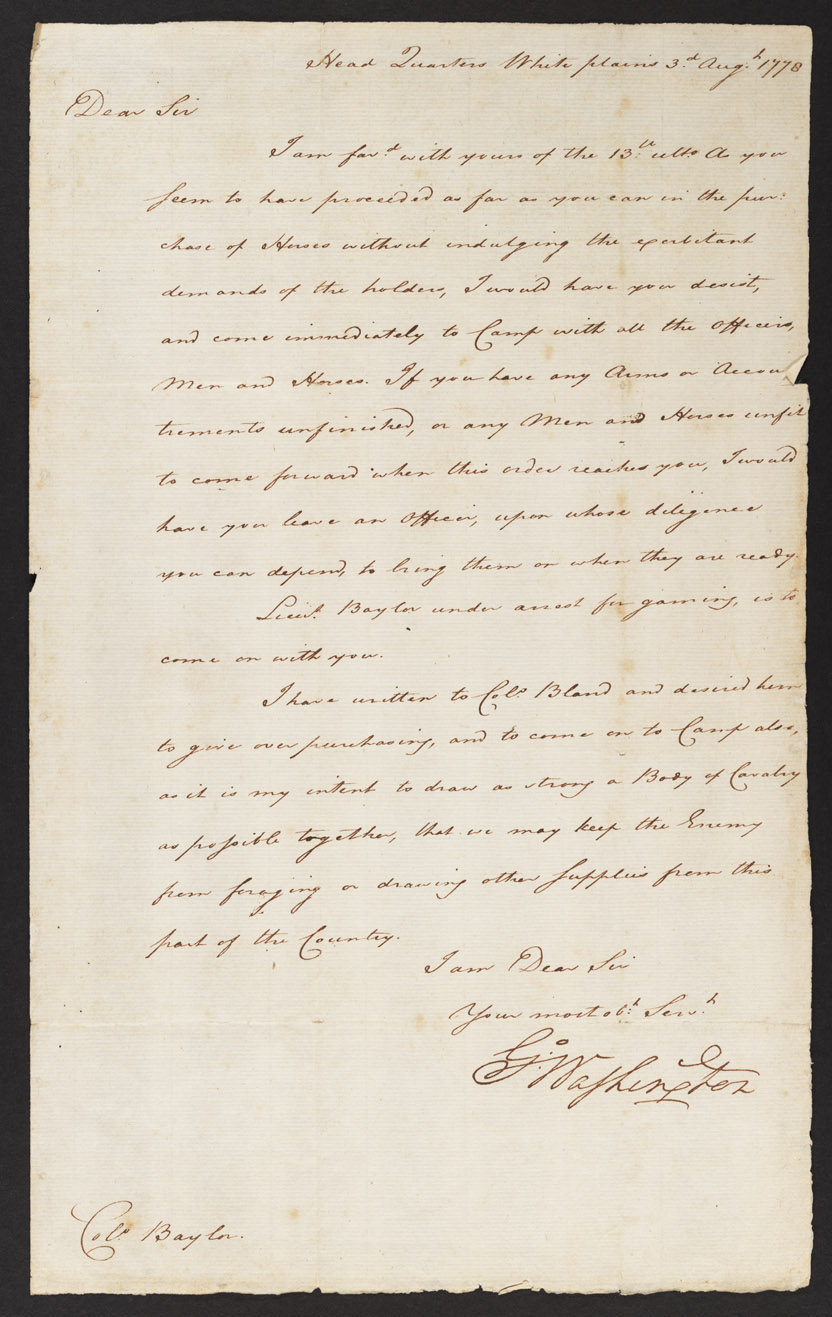 Head Quarters White plains 3.d Aug.t 1778
Dear Sir
I am fav.d with yours of the 13.th ulto. As you
seem to have proceeded as far as you can in the pur:
chase of Horses without indulging the exorbitant
demands of the holders, I would have you desist,
and come immediately to Camp with all the Officers,
Men and Horses. If you have any Arms or Accou
trements unfinished, or any Men and Horses unfit
to come forward when this order reaches you, I would
have you leave an Officer, upon whose diligence
you can depend, to bring them on when they are ready.
Lieut. Baylor under arrest for gaming, is to
come on with you.
I have written to Colo. Bland and desired him
to give over purchasing, and to come on to Camp also,
as it is my intent to draw as strong a Body of Cavalry
as possible together, that we may keep the Enemy
from foraging or drawing other Supplies from this
part of the Country.
I am Dear Sir
Your most ob.t Serv.t
Go: Washington
Colo. Baylor.